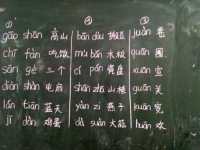 ① ② ③
gāo shān 高山 bān dèng 板凳 juǎn 卷
chī fàn 吃饭 mù bǎn 木板 quān 圈
sān gè 三个 cí pán 瓷盘 xuān 宣
diàn shàn 电扇 shān zhā 山楂 guān 关
lán tiān 蓝天 yàn zi 燕子 kuān 宽
jī dàn 鸡蛋 dà suàn 大蒜 huān 欢